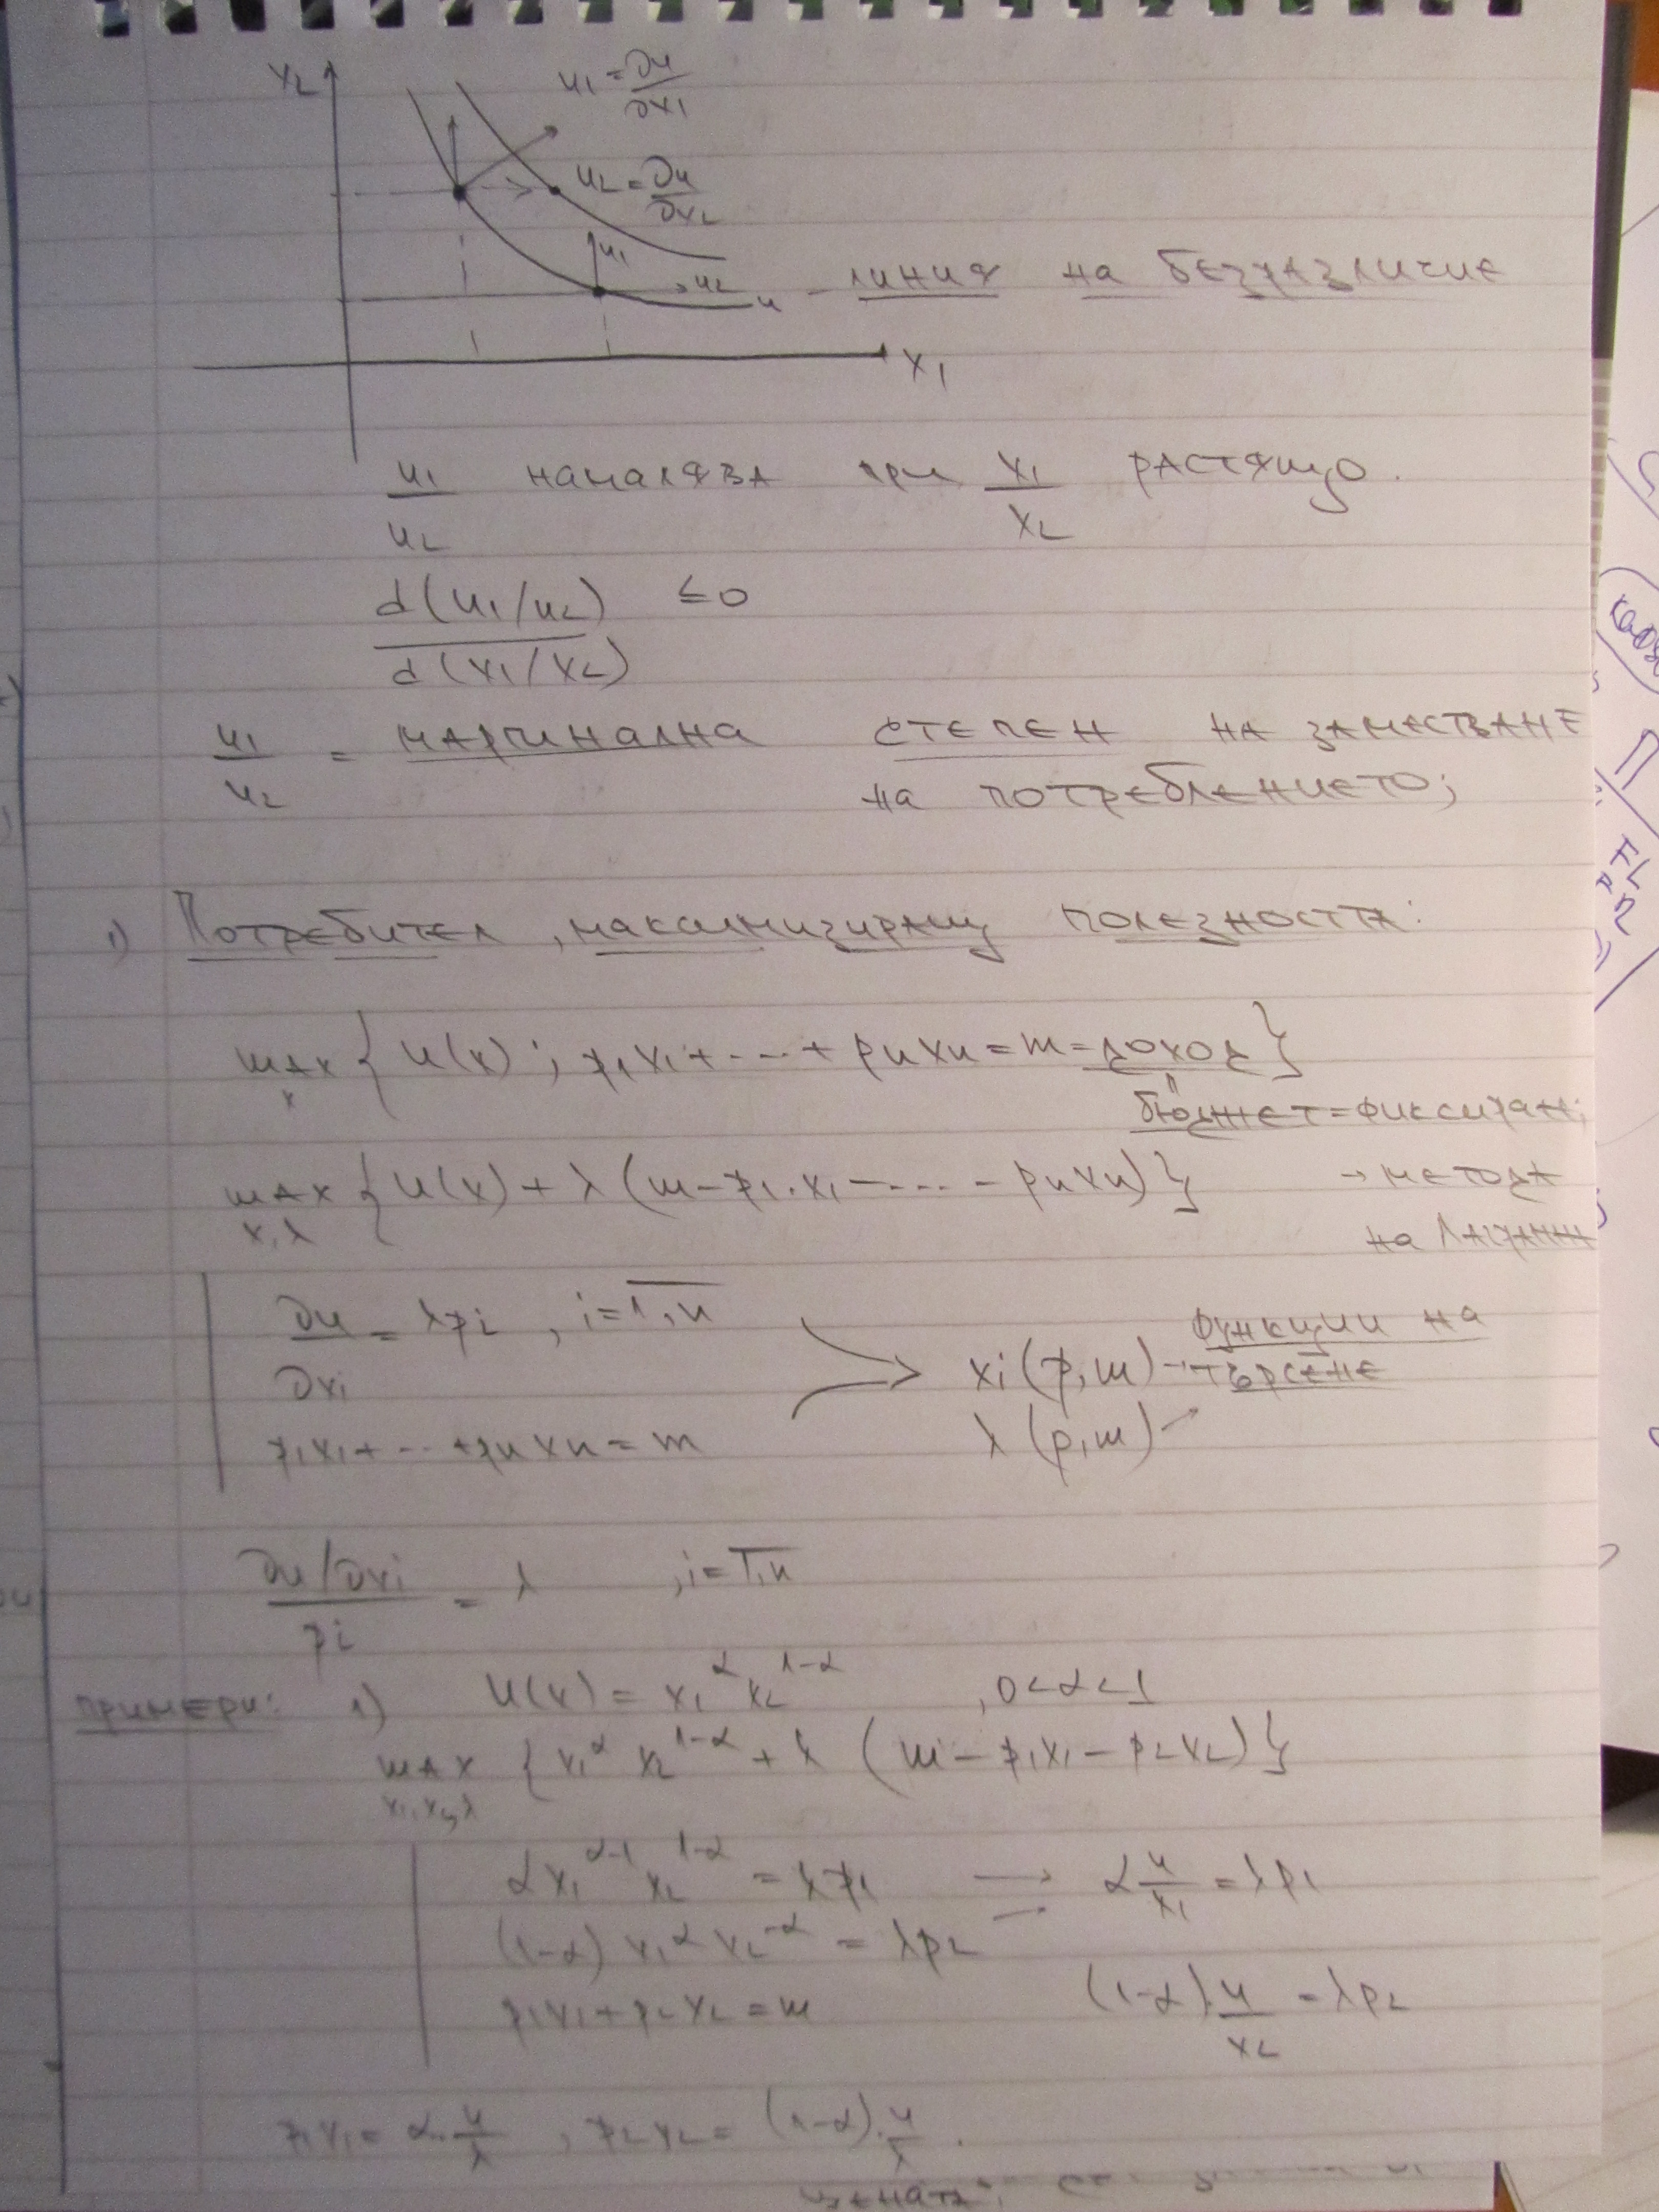 x₂
u₁ = ∂u/∂x₁
u₂ = ∂u/∂x₂
u₁
u₂
u - линия на безразличие
x₁
u₁/u₂ намалява при x₁/x₂ растящо.
d(u₁/u₂)/d(x₁/x₂) ≤ 0
u₁/u₂ = маргинална степен на заместване
на потреблението;
1) Потребител, максимизиращ полезността:
max x { u(x); p₁x₁ + ... + pnxn = m = доход }
бюджет = фиксиран;
max x,λ { u(x) + λ (m - p₁.x₁ - .... - pnxn) } → метода
на Лагранж
∂u/∂xi = λpi , i = 1,n
p₁x₁ + ... + pnxn = m
функции на
xi (p,m) → търсене
λ (p,m) →
(∂u/∂xi)/pi = λ , i = 1,n
примери: 1) u(x) = x₁^α x₂^(1-α) , 0<α<1
max x₁,x₂,λ { x₁^α x₂^(1-α) + λ (m - p₁x₁ - p₂x₂) }
αx₁^(α-1) x₂^(1-α) = λp₁ → α u/x₁ = λp₁
(1-α) x₁^α x₂^(-α) = λp₂ →
p₁x₁ + p₂x₂ = m
(1-α).u/x₂ = λp₂
p₁x₁ = α.u/λ , p₂x₂ = (1-α).u/λ .